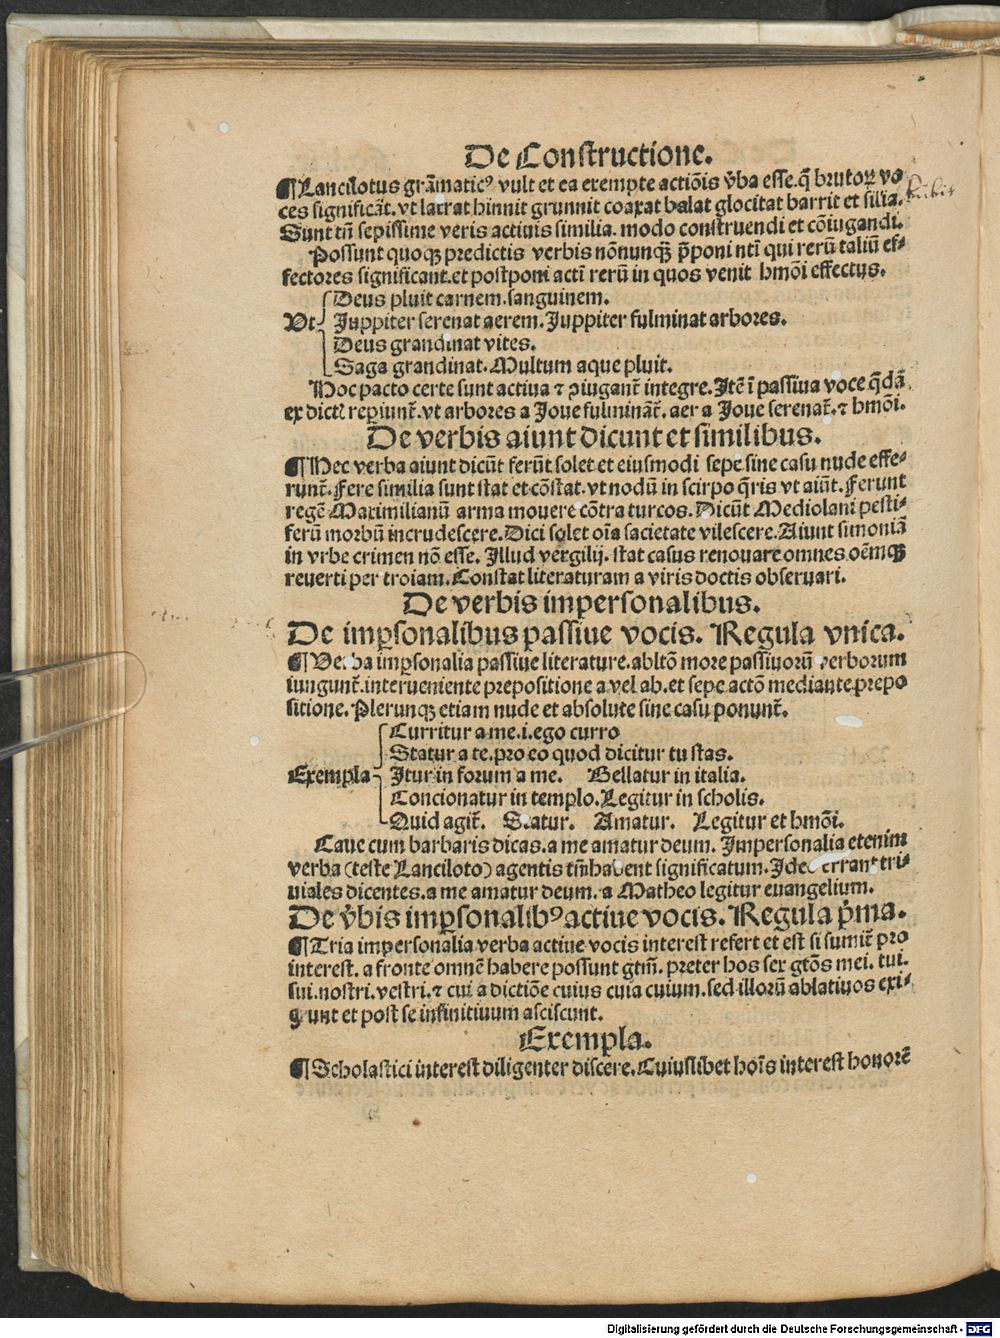 De Constructione.
¶Lancilotus grāmaticꝰ vult et ea exempte actiōis v̄ba esse. q̄ brutoꝝ vo
ces significāt. vt latrat hinnit grunnit coaxat balat glocitat barrit et silia.
Sunt tn̄ sepissime veris actiuis similia. modo construendi et cōiugandi.
Possunt quoqꝫ predictis verbis nōnunqꝫ p̄poni ntī qui rerū taliū ef⸗
fectores significant. et postponi actī rerū in quos venit hmōi effectus.
Deus pluit carnem. sanguinem.
Vt Juppiter serenat aerem. Juppiter fulminat arbores.
Deus grandinat vites.
Saga grandinat. Multum aque pluit.
Hoc pacto certe sunt actiua ⁊ ꝯiugant̄ integre. Itē ī passiua voce q̄dā
ex dictꝭ reꝑiunt̄. vt arbores a Joue fulmināt̄. aer a Joue serenat̄. ⁊ hmōi.
De verbis aiunt dicunt et similibus.
¶Hec verba aiunt dicūt ferūt solet et eiusmodi sepe sine casu nude effe⸗
runt̄. Fere similia sunt stat et cōstat. vt nodū in scirpo q̄ris vt aiūt. Ferunt
regē Maximilianū arma mouere cōtra turcos. Dicūt Mediolani pesti⸗
ferū morbū incrudescere. Dici solet oīa sacietate vilescere. Aiunt simoniā
in vrbe crimen nō esse. Illud vergilij. stat casus renouare omnes oēmqꝫ
reuerti per troiam. Constat literaturam a viris doctis obseruari.
De verbis impersonalibus.
De imꝑsonalibus passiue vocis. Regula vnica.
¶Verba imꝑsonalia passiue literature. abltō more passiuorū verborum
iungunt̄. interueniente prepositione a vel ab. et sepe actō mediante prepo
sitione. Plerunqꝫ etiam nude et absolute sine casu ponunt̄.
Curritur a me. i. ego curro
Statur a te. pro eo quod dicitur tu stas.
Exempla Itur in forum a me. Bellatur in italia.
Concionatur in templo. Legitur in scholis.
Quid agit̄. Statur. Amatur. Legitur et hmōi.
Caue cum barbaris dicas. a me amatur deum. Impersonalia etenim
verba (teste Lanciloto) agentis tm̄ habent significatum. Ideo errant tri⸗
uiales dicentes. a me amatur deum. a Matheo legitur euangelium.
De v̄bis imꝑsonalibꝰ actiue vocis. Regula p̄ma.
¶Tria impersonalia verba actiue vocis interest refert et est si sumit̄ pro
interest. a fronte omnē habere possunt gtm̄. preter hos sex gtōs mei. tui.
sui. nostri. vestri. ⁊ cui a dictiōe cuius cuia cuium. sed illorū ablatiuos exi⸗
gunt et post se infinitiuum asciscunt.
Exempla.
¶Scholastici interest diligenter discere. Cuiuslibet hoīs interest honorē
Digitalisierung gefördert durch die Deutsche Forschungsgemeinschaft - DFG